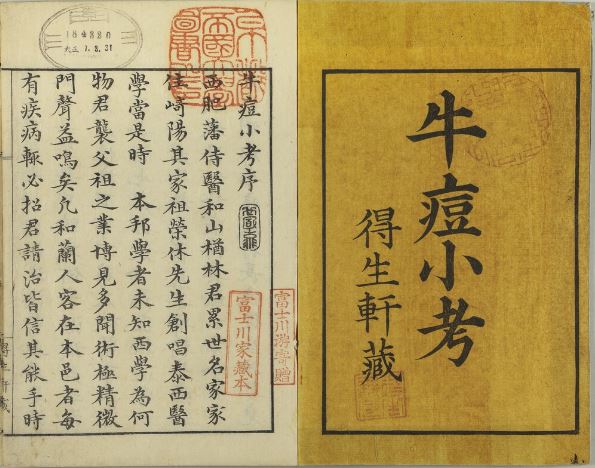 牛痘小考
得生軒藏
牛痘小考序
西肥藩侍醫和山楢林君累世名家家
住崎陽其家祖榮休先生創唱泰西醫
學當是時 本邦學者未知西學為何
物君襲父祖之業博見多聞術極精微
門聲益鳴矣凢和蘭人客在本邑者每
有疾病輙必招君請治皆信其能手時
富士川游寄贈
富士川家藏本
184330
大正 7.3.31